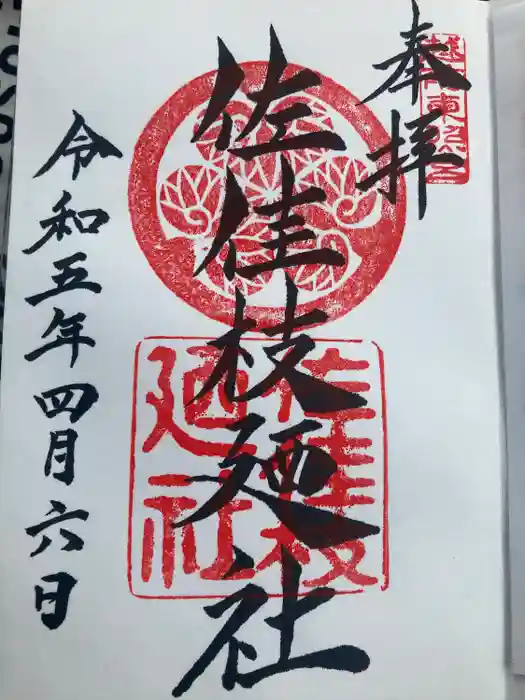 奉拝
佐佳枝廼社
佐佳枝
廼社
令和五年四月六日